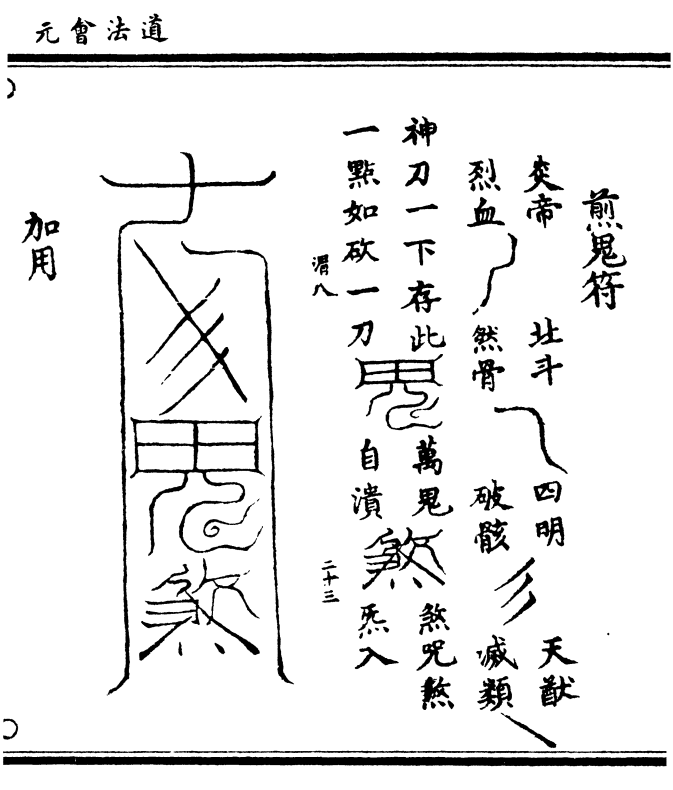 道法會元
煎鬼符
炎帝
烈血
北斗
然骨
四明
破骸
天猷
滅類
神刀一下存此
一點如砍一刀
鬼
萬鬼
自潰
煞
煞咒煞
炁入
二十三
鬼
煞
加用